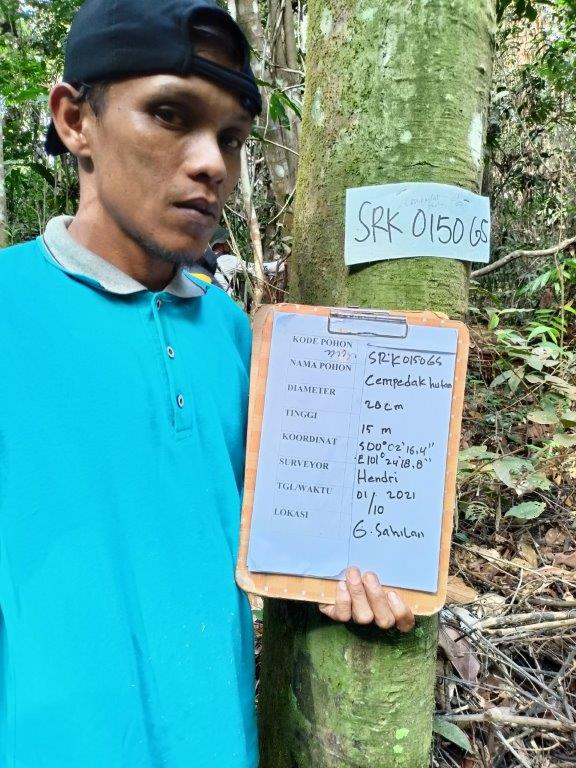 SRK 0150 GS
KODE POHON SRK0150GS
NAMA POHON Cempedak hutan
DIAMETER 28 cm
TINGGI 15 m
KOORDINAT S00° 02' 16,4"
E101° 24' 18,8"
SURVEYOR Hendri
TGL/WAKTU 01/10 2021
LOKASI G. Sahilan